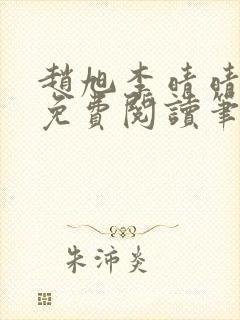 趙旭李晴晴
免費閱讀筆
朱沛炎